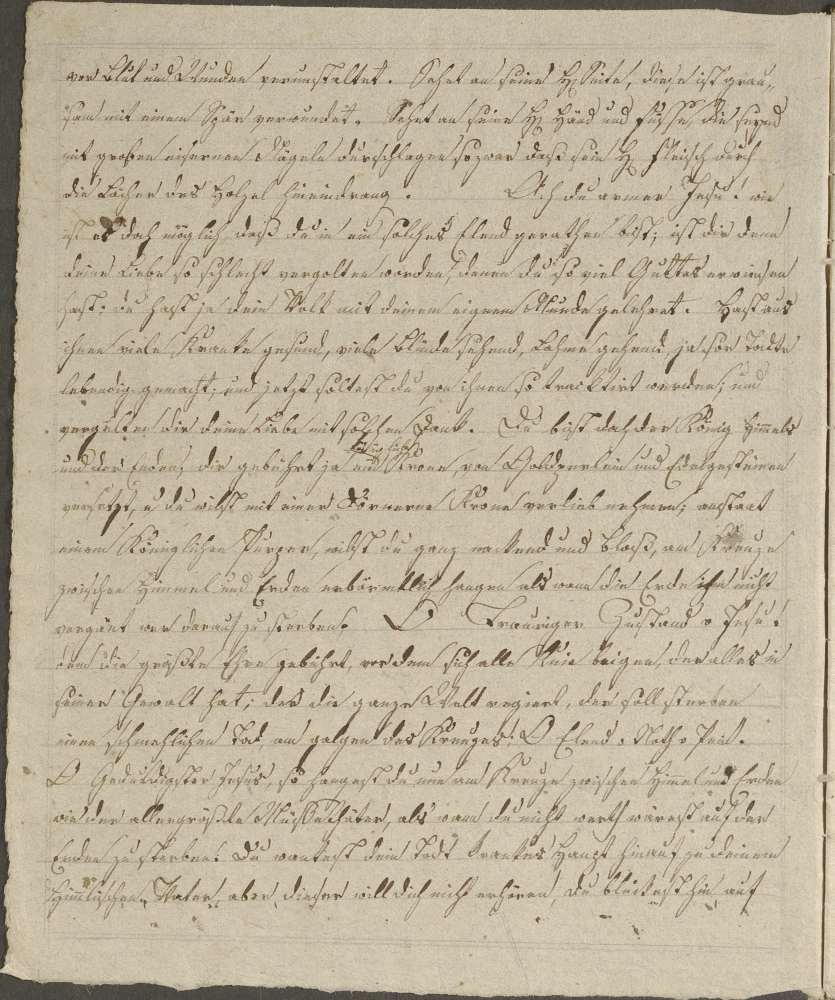 von Blut und Wunden verunstaltet. Sehet an seine H. Seite, diese ist grau-
sam mit einem Spär verwundet. Sehet an seine H. Händ und Füsse, die seynd
mit großen eisernen Nägeln durschlagen sozwar daß sein H. Fleisch durch
die Löcher des Holzes hineindrang. Ach du armer Jesu! wie
ist es doch möglich, daß du in ein solches Elend gerathen bist; ist dir denn
deine Liebe so schlecht vergolten worden, denen du so viel Guttes erwiesen
hast; du hast ja dein Volk mit deinem eignen Munde gelehret. Hast aus
ihnen viele Kranke gesund, viele Blinde sehend, Lahme gehend, ja sor Todte
lebendig gemacht; und jetzt soltest du von ihnen so tracktirt werden; und
vergelten dir deine Liebe mit solchen Dank. Du bist doch der König Himmels
und der Erden; dir gebührt ja ein Krone, von Goldperlein und Edelgesteinen
versetzt, u du wilst mit einer Dörnerne Krone verlieb nehmen; anstaat
einem Königlichen Purper, wilst du ganz nackend und bloß, am Kreuze
zwischen Himmel und Erden erbärmtlich hangen als wann die Erde nicht
vergönt wer darauf zu sterben. O Trauriger Zustand o Jesu!
dem die größte Ehre gebührt, vor dem sich alle Knie beigen, der alles in
seiner Gewalt hat; der die ganze Welt regiert, der soll sterben
einen schmehlichen Tod, am galgen des Kreuzes! O Elend o Noth o Pein.
O Gedultigster Jesus, so hangest du nun am Kreuze zwischen Himel und Erden
wie der allergrößte Missethäter, als wann du nicht werth wärest auf der
Erden zu sterben! Du wentest dein Todt krankes Haupt hinauf zu deinem
Himlischen Vater, aber dieser will dich nicht erhören, du blickest hin auf